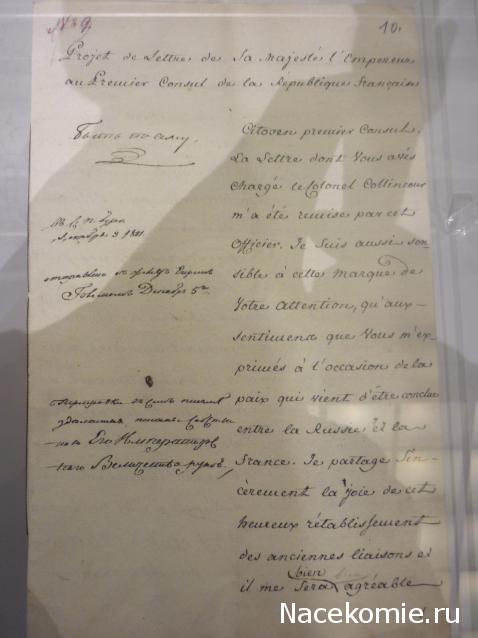 № 9.
10.
Projet de Lettre de Sa Majesté l'Empereur
au Premier Consul de la République française
Быть по сему.
Citoyen premier Consul.
La Lettre dont Vous avés
chargé le Colonel Collincour
m'a été remise par cet
Officier. Je Suis aussi sen-
sible à cette marque de
Votre attention, qu'aux
sentimens que Vous m'ex-
primés à l'occasion de la
paix qui vient d'être conclue
entre la Russie et la
France. Je partage Sin-
cèrement la joie de cet
heureux rétablissement
des anciennes liaisons et
il me Sera bien agréable
Декабря 3 1801.
отправлено с
Декабря 5го
в семъ
Его Император
-скаго Величества рукою.
Nacekomie.ru